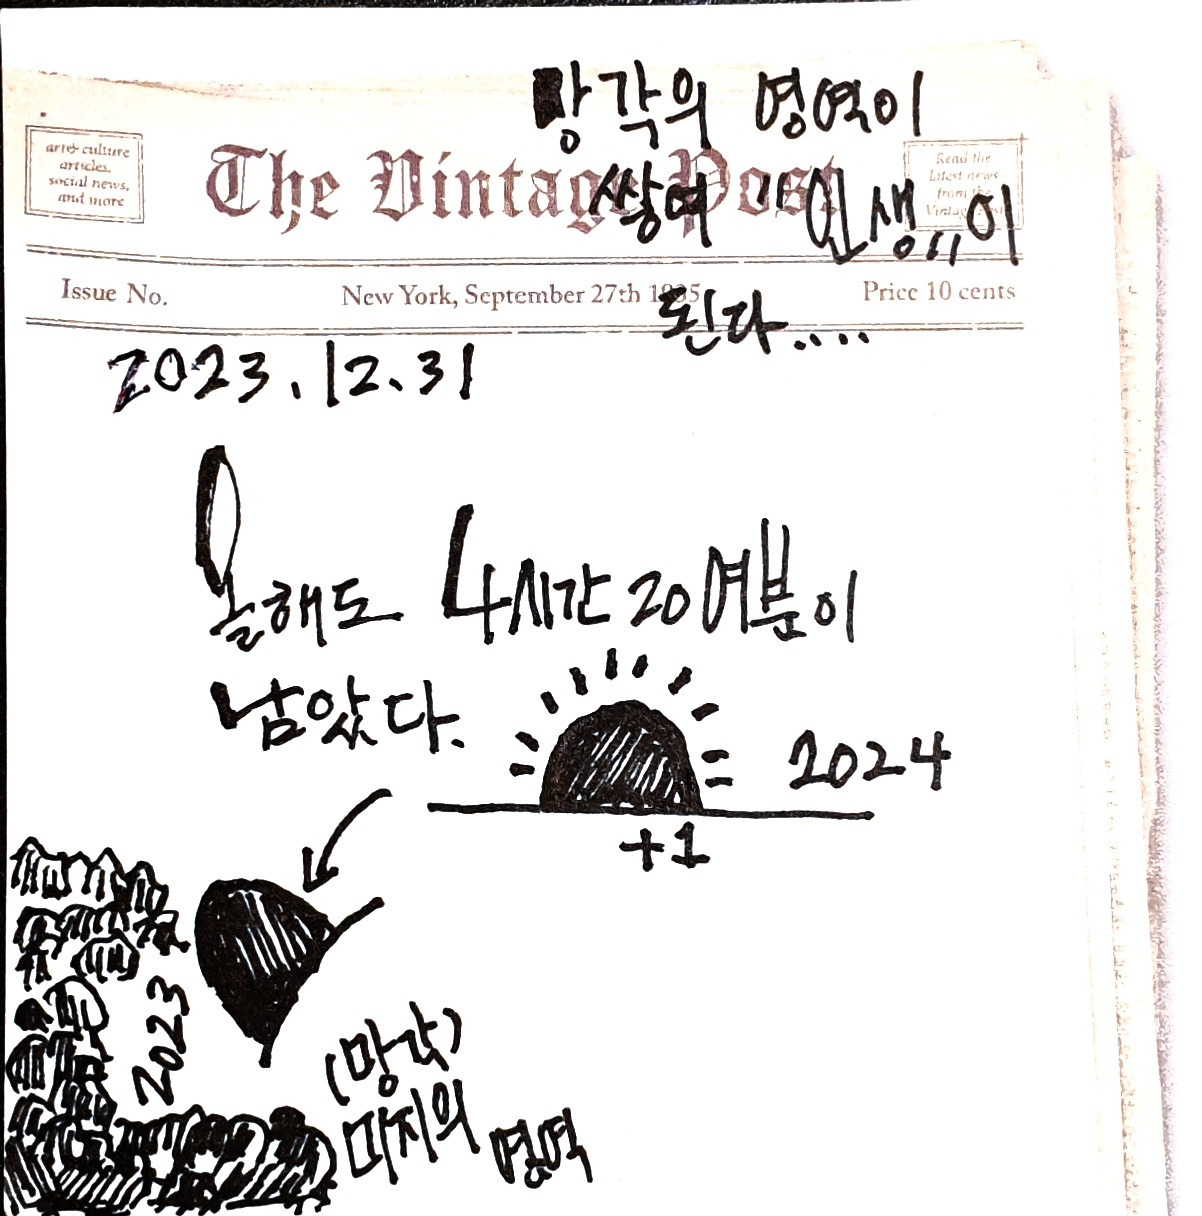 망각의 영역이
art& culture
articles,
social news,
and more
The Vintage Post
Read the
latest news
from the
쌓여 "인생"이
Issue No.
New York, September 27th 1935
Price 10 cents
된다....
2023.12.31
올해도 4시간 20여분이
남았다.
2024
+1
2023
(망각)
미지의 영역